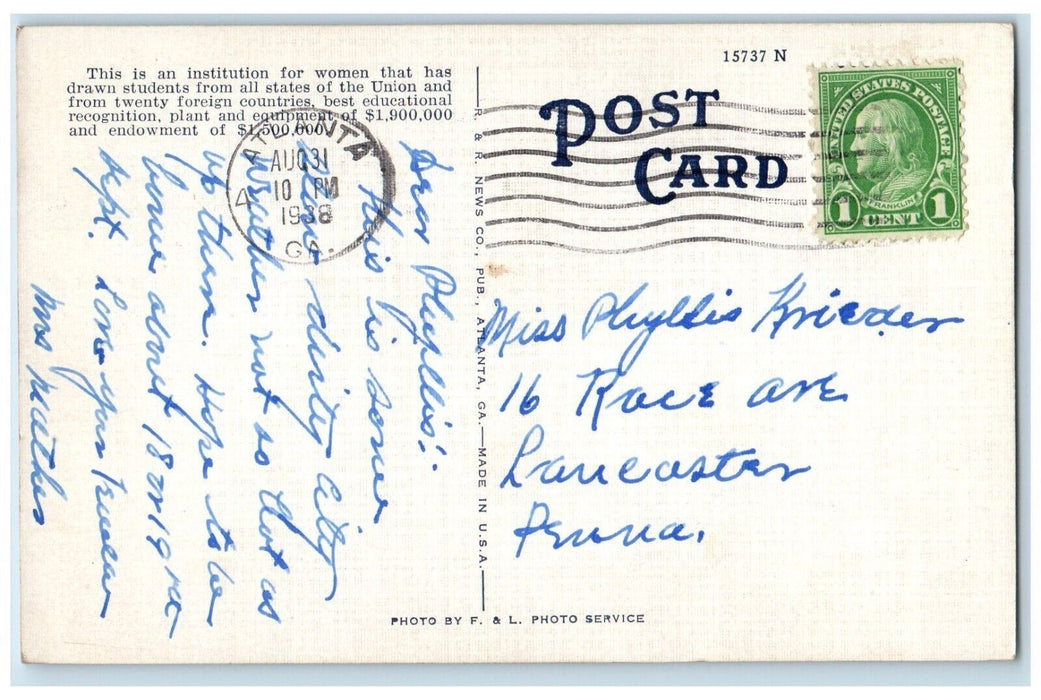 This is an institution for women that has
drawn students from all states of the Union and
from twenty foreign countries, best educational
recognition, plant and equipment of $1,900,000
and endowment of $1,500,000.
ATLANTA
AUG 31
10 PM
1938
GA.
Dear Phyllis:-
This is some
city
Weather not so hot as
up there. Hope to be
home about 18 or 19
Sept. Love your
Mrs Mathes
R. & R. NEWS CO., PUB., ATLANTA, GA.—MADE IN U.S.A.
15737 N
POST
CARD
UNITED STATES POSTAGE
FRANKLIN
1 CENT 1
Miss Phyllis Krieder
16 Race Ave
Lancaster
Penna.
PHOTO BY F. & L. PHOTO SERVICE